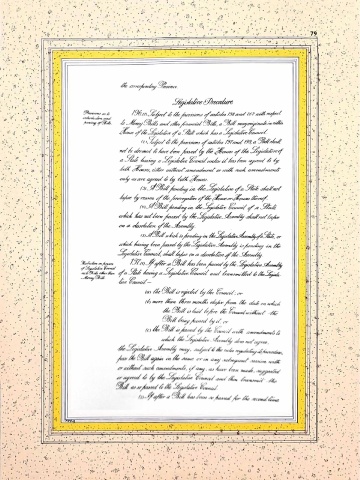 79
the corresponding Province.
Legislative Procedure
Provisions as to
introduction and
passing of Bills.
196.(1) Subject to the provisions of articles 198 and 207 with respect
to Money Bills and other financial Bills, a Bill may originate in either
House of the Legislature of a State which has a Legislative Council.
(2) Subject to the provisions of articles 197 and 198, a Bill shall
not be deemed to have been passed by the Houses of the Legislature of
a State having a Legislative Council unless it has been agreed to by
both Houses, either without amendment or with such amendments
only as are agreed to by both Houses.
(3) A Bill pending in the Legislature of a State shall not
lapse by reason of the prorogation of the House or Houses thereof.
(4) A Bill pending in the Legislative Council of a State
which has not been passed by the Legislative Assembly shall not lapse
on a dissolution of the Assembly.
(5) A Bill which is pending in the Legislative Assembly of a State, or
which having been passed by the Legislative Assembly is pending in the
Legislative Council, shall lapse on a dissolution of the Assembly.
Restriction on powers
of Legislative Council
as to Bills other than
Money Bills.
197.(1) If after a Bill has been passed by the Legislative Assembly
of a State having a Legislative Council and transmitted to the Legisla-
tive Council —
(a) the Bill is rejected by the Council; or
(b) more than three months elapse from the date on which
the Bill is laid before the Council without the
Bill being passed by it; or
(c) the Bill is passed by the Council with amendments to
which the Legislative Assembly does not agree,
the Legislative Assembly may, subject to the rules regulating its procedure,
pass the Bill again in the same or in any subsequent session with
or without such amendments, if any, as have been made, suggested
or agreed to by the Legislative Council and then transmit the
Bill as so passed to the Legislative Council.
(2) If after a Bill has been so passed for the second time